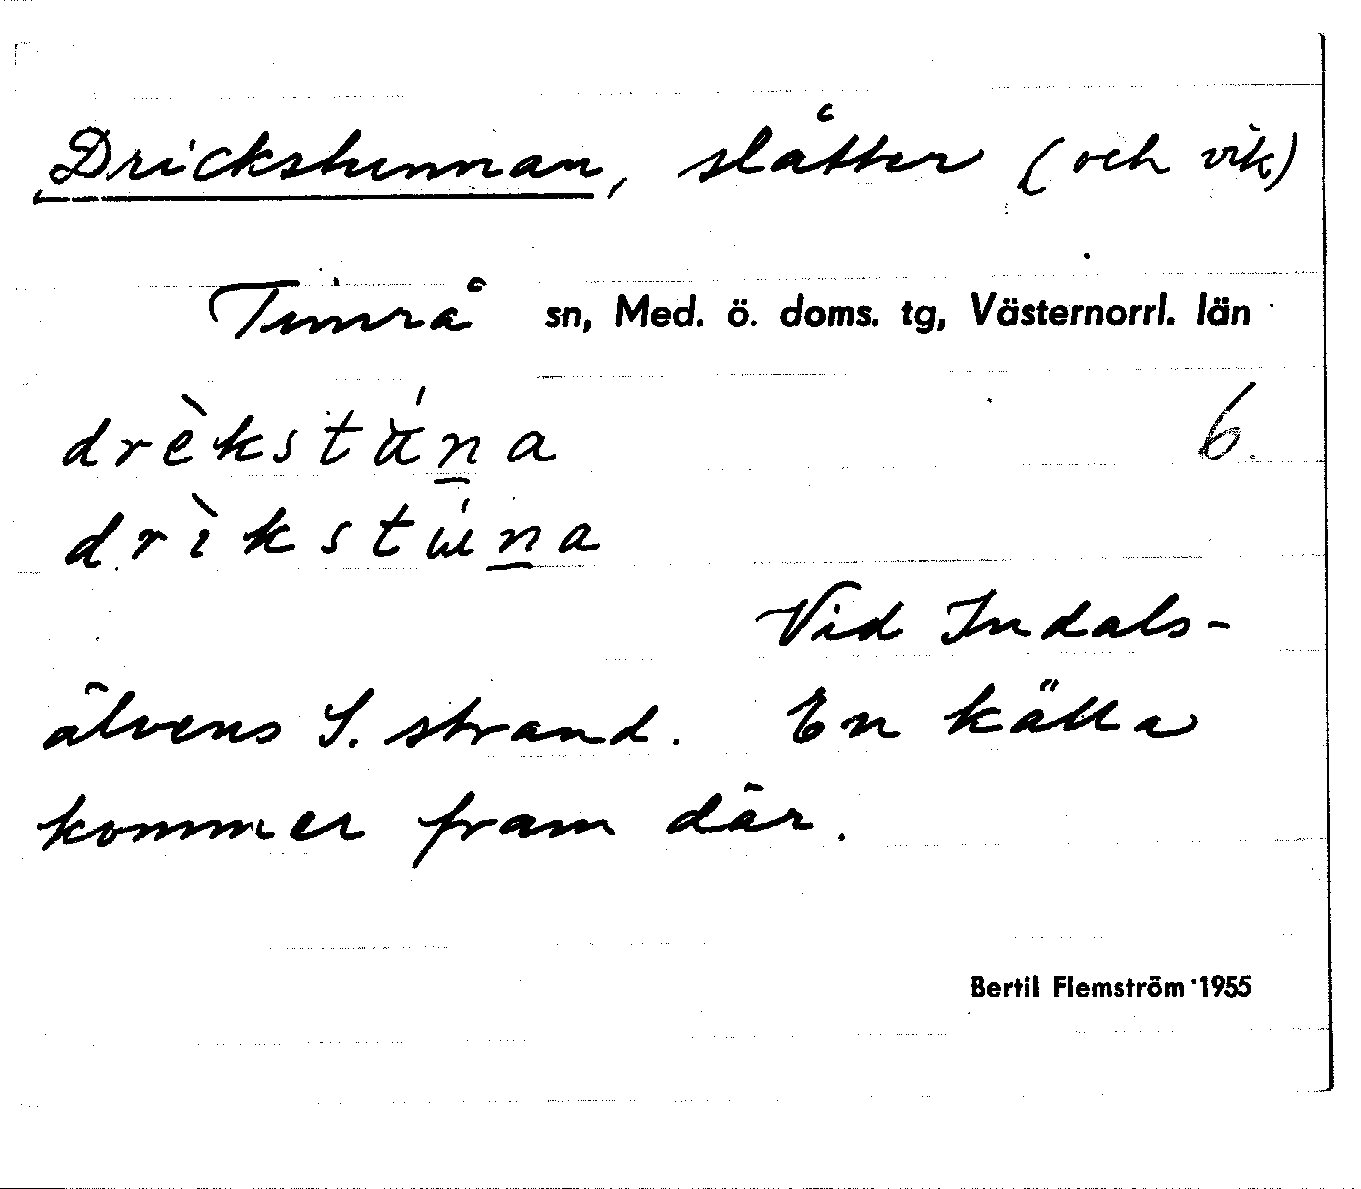 Drickstunnan, slåtter (och vik)
Timrå sn, Med. ö. doms. tg, Västernorrl. län
6.
Vid Indals-
älvens S. strand. En källa
kommer fram där.
Bertil Flemström 1955